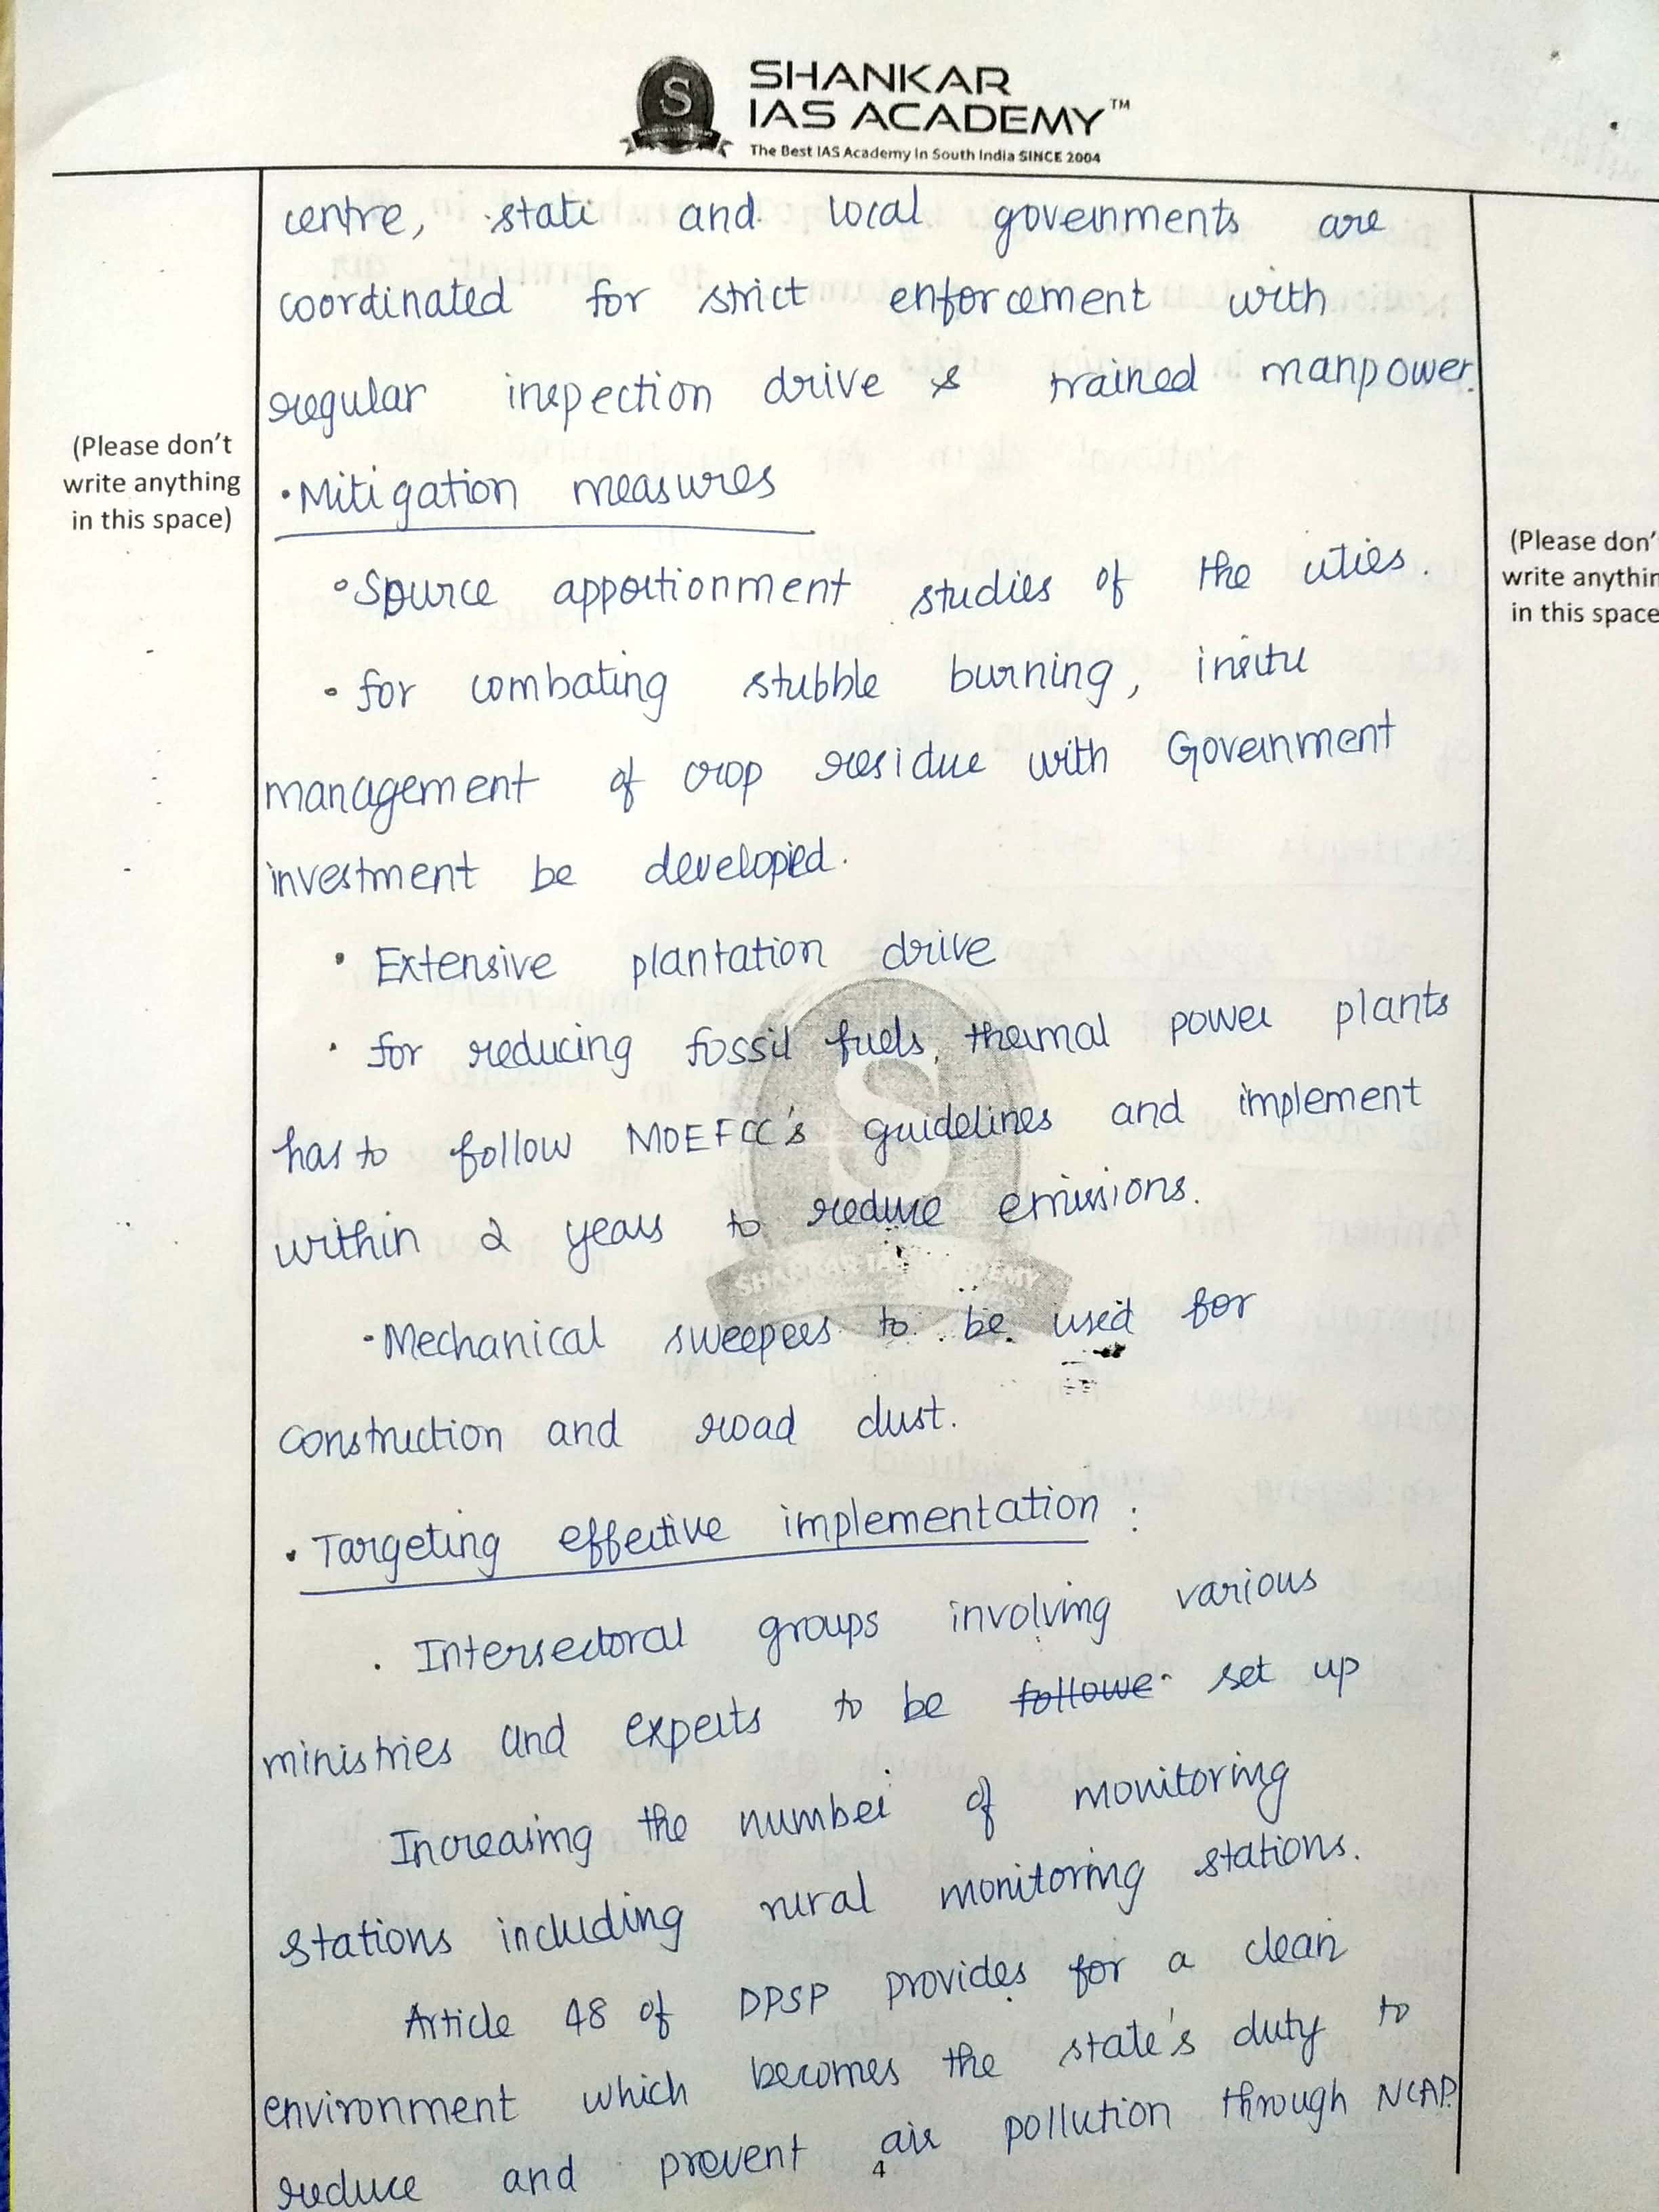 SHANKAR
IAS ACADEMY™
The Best IAS Academy In South India SINCE 2004
centre, state and local governments are
coordinated for strict enforcement with
regular inspection drive & trained manpower.
(Please don't
write anything
in this space)
• Mitigation measures
(Please don'
write anythin
in this space
• Source apportionment studies of the cities.
• for combating stubble burning, insitu
management of crop residue with Government
investment be developed.
• Extensive plantation drive
• for reducing fossil fuels, thermal power plants
has to follow MOEFCC's guidelines and implement
within 2 years to reduce emissions.
SHANKAR IAS ACADEMY
• Mechanical sweepers to be used for
construction and road dust.
• Targeting effective implementation :
• Intersectoral groups involving various
ministries and experts to be followe set up
Increasing the number of monitoring
stations including rural monitoring stations.
Article 48 of DPSP provides for a clean
environment which becomes the state's duty to
reduce and prevent air pollution through NCAP.
4